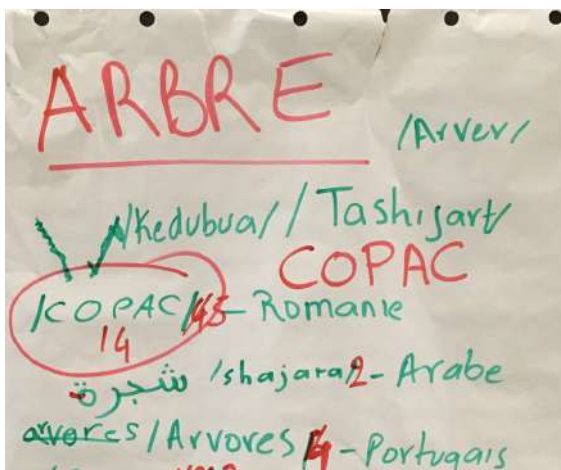 ARBRE
/Arver/
/Kedubua/ / Tashijart/
COPAC
/COPAC/ - Romanie
14
شجرة /shajara/2 - Arabe
arvores /Arvores/ 4 - Portugais